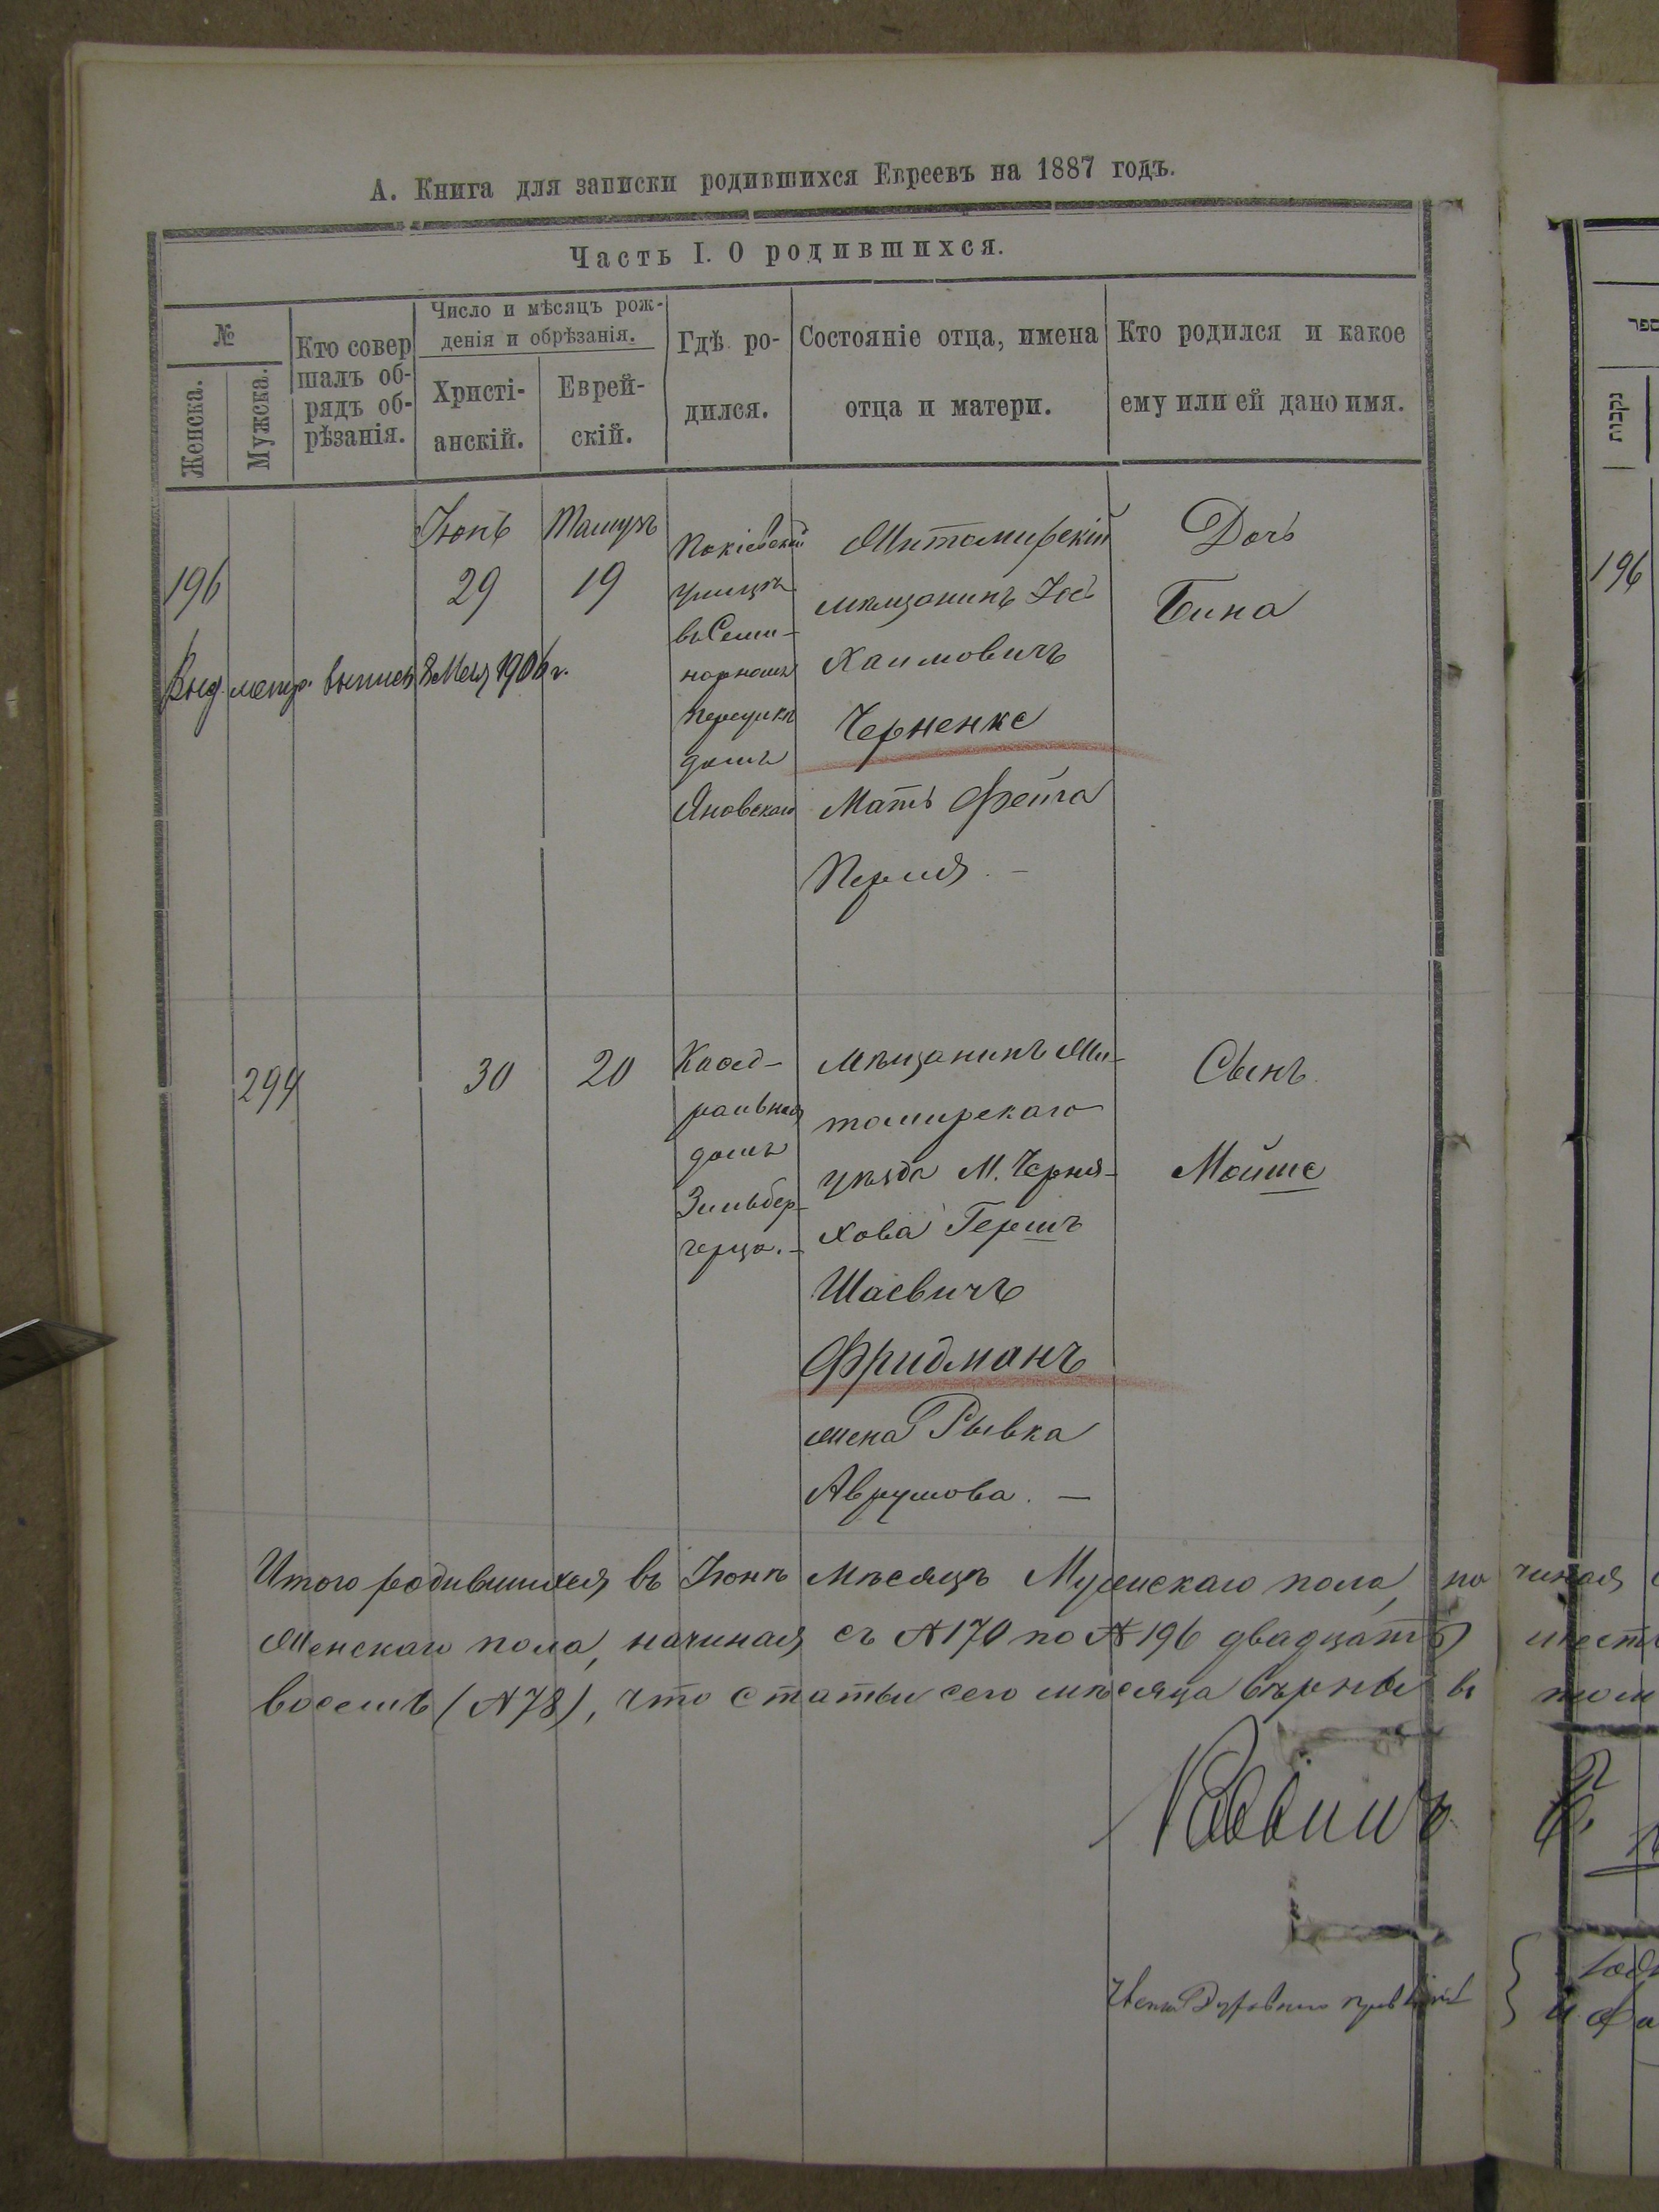 А. Книга для записки родившихся Евреевъ на 1887 годъ.
Часть I. О родившихся.
№
Женска.
Мужска.
Кто совер
шалъ об-
рядъ об-
рѣзанія.
Число и мѣсяцъ рож-
денія и обрѣзанія.
Христі-
анскій.
Еврей-
скій.
Гдѣ ро-
дился.
Состояніе отца, имена
отца и матери.
Кто родился и какое
ему или ей дано имя.
196
Выд. метр. выпись 8 Мая 1906 г.
Іюнь
29
Тамузъ
19
улицѣ
въ Семи-
нарномъ
переулкѣ
домъ
Яновскаго
Житомирскій
мѣщанинъ Іось
Хаимовичъ
Черненко
Мать Фейга
Перля. -
Дочь
Бина
299
30
20
Каѳед-
ральная
домъ
Зильбер-
герца. -
Мѣщанинъ Жи-
томирскаго
уѣзда М. Черня-
хова Гершъ
Шаевичъ
Фридманъ
жена Рывка
Аврумова. -
Сынъ
Мойше
Итого родившихся въ Іюнѣ мѣсяцѣ Мужскаго пола, на чиная
Женскаго пола, начиная съ №170 по №196 двадцать
восемь (№78), что статьи сего мѣсяца вѣрны въ том
Раввинъ
ספר
נקבות
196